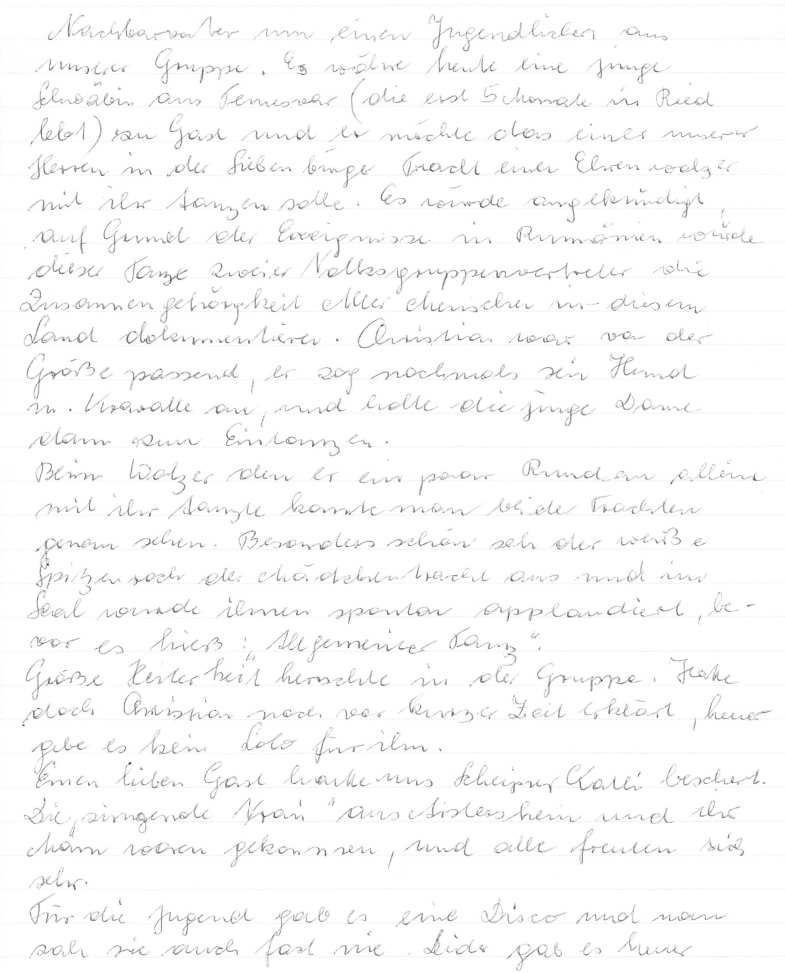 Nachbarvater um einen Jugendlichen aus
unserer Gruppe. Es wäre heute eine junge
Schwäbin aus Temesvar (die erst 5 Monate in Ried
lebt) zu Gast und er möchte das einer unserer
Herren in der Siebenbürger Tracht einen Ehrenwalzer
mit ihr tanzen solle. Es wurde angekündigt,
auf Grund der Ereignisse in Rumänien würde
dieser Tanz zweier Volksgruppenvertreter die
Zusammengehörigkeit Aller Menschen in diesem
Land dokumentieren. Christian war von der
Größe passend, er zog nochmals sein Hemd
m. Kravatte an, und holte die junge Dame
dann zum Eintanzen.
Beim Walzer den er ein paar Runden allein
mit ihr tanzte konnte man beide Trachten
genau sehen. Besonders schön sah der weiße
Spitzenrock der Mädchentracht aus und im
Saal wurde ihnen spontan applaudiert, be-
vor es hieß: „Allgemeiner Tanz".
Große Heiterkeit herrschte in der Gruppe. Hatte
doch Christian noch vor kurzer Zeit erklärt, heuer
gebe es kein Solo für ihn.
Einen lieben Gast hatte uns Kati beschert.
Die „singende Wirtin" aus Aistersheim und ihr
Mann waren gekommen, und alle freuten sich
sehr.
Für die Jugend gab es eine Disco und man
sah sie auch fast nie. Leider gab es heuer